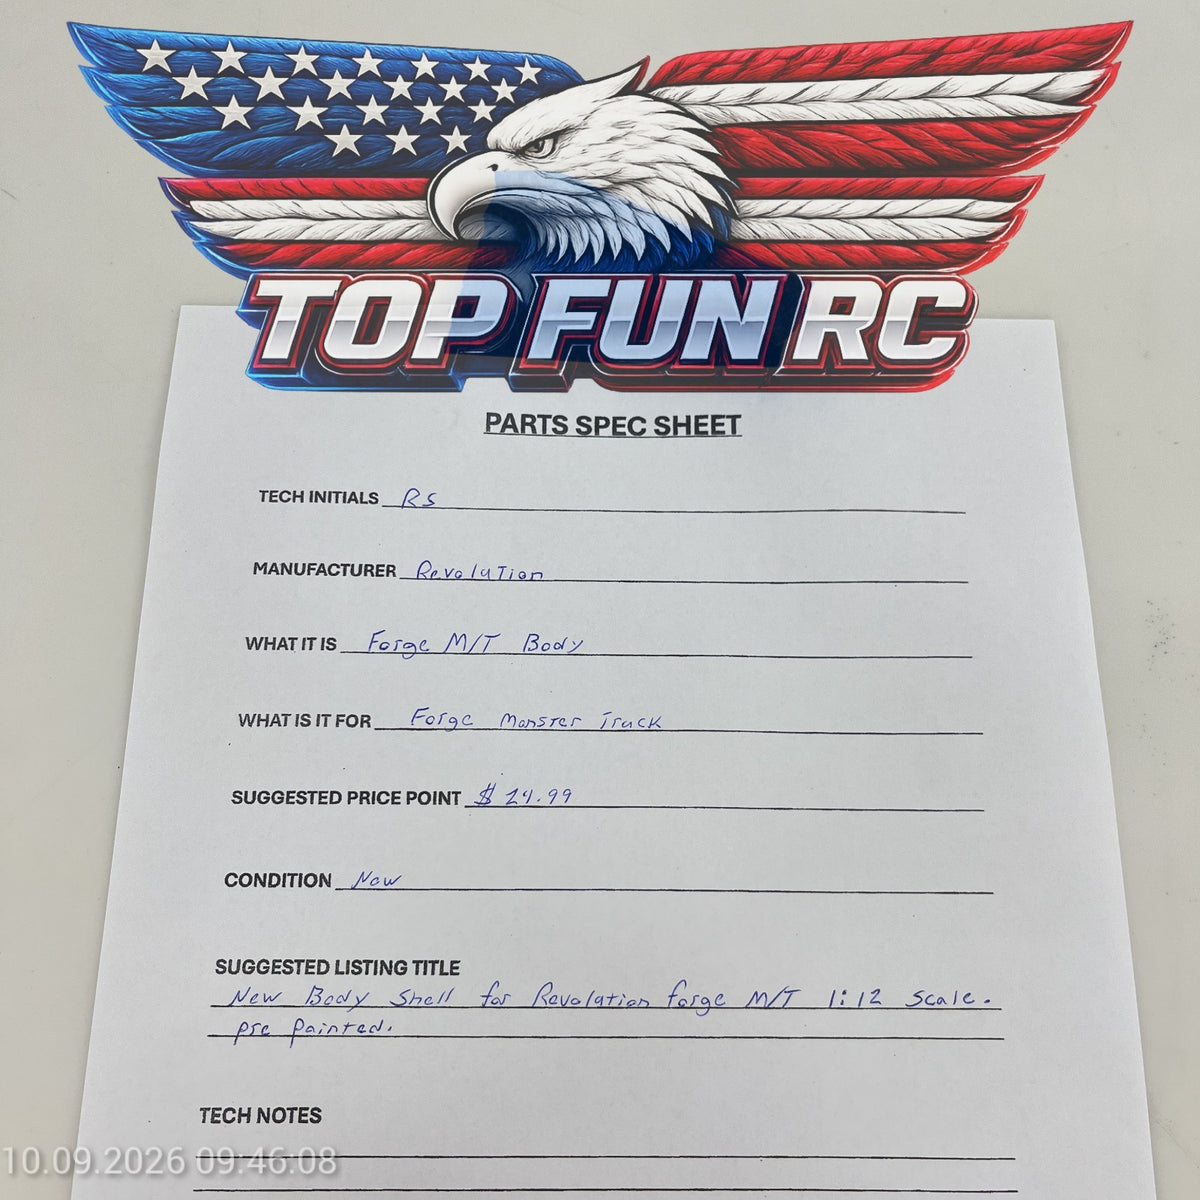 TOP FUN RC
PARTS SPEC SHEET
TECH INITIALS RS
MANUFACTURER Revolution
WHAT IT IS Forge M/T Body
WHAT IS IT FOR Forge Monster Truck
SUGGESTED PRICE POINT $ 24.99
CONDITION New
SUGGESTED LISTING TITLE
New Body Shell for Revolution forge M/T 1:12 Scale.
pre painted.
TECH NOTES
10.09.2026 09:46:08